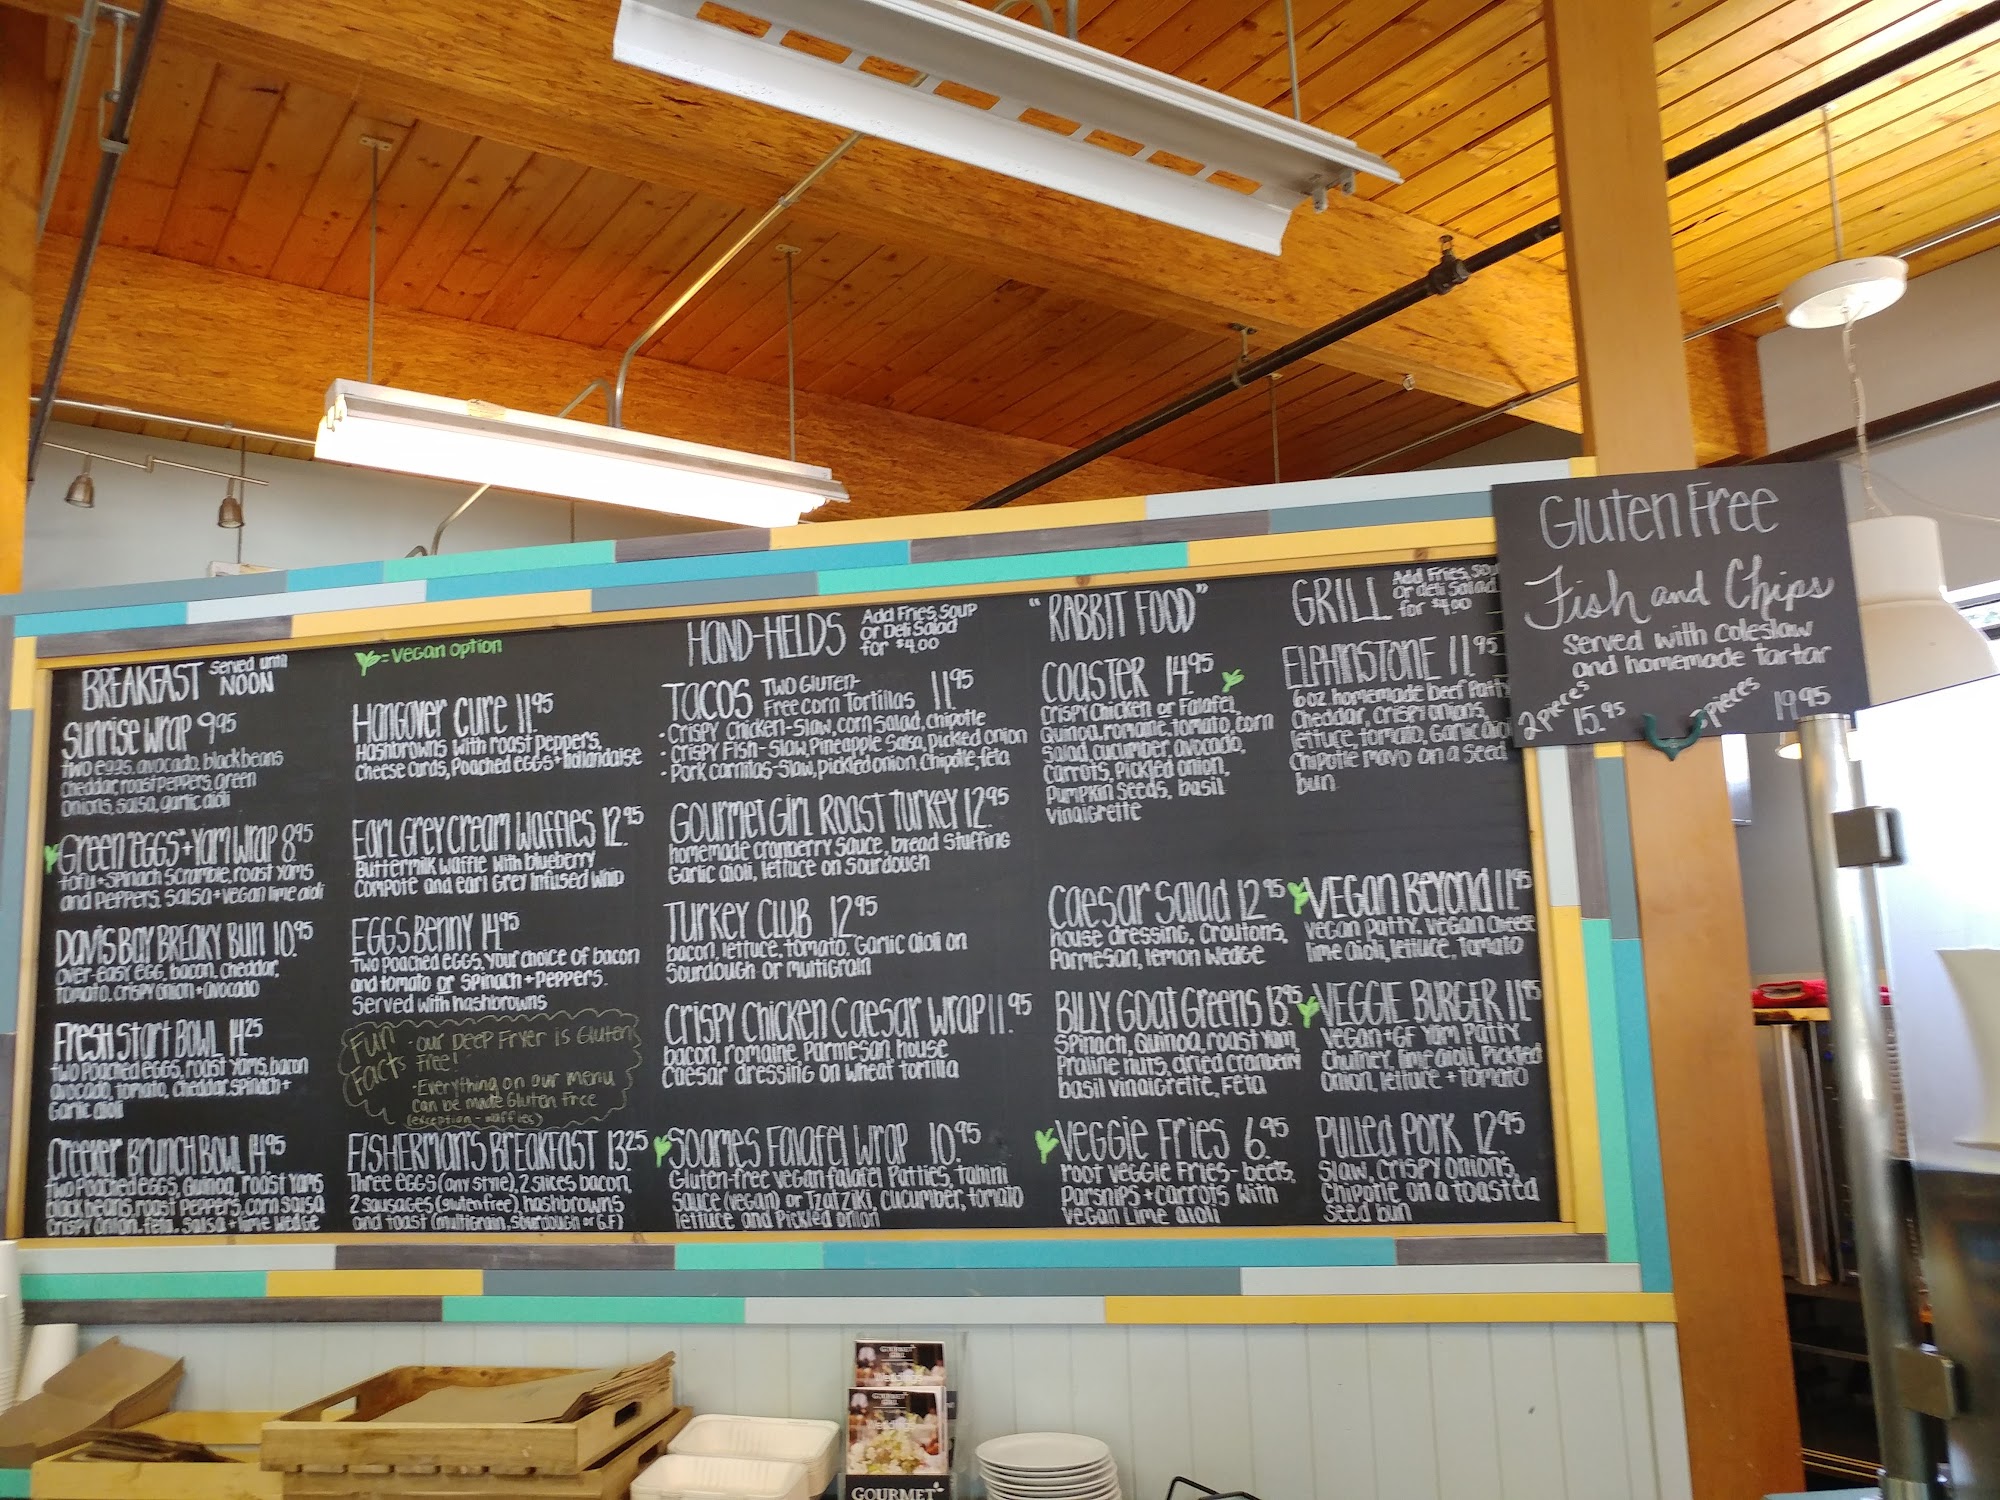 BREAKFAST Served until
NOON
Sunrise Wrap 9.95
Two eggs, avocado, black beans
cheddar, roast peppers, green
onions, salsa, garlic aioli
Green "eggs" + Yam Wrap 8.95
tofu + spinach scramble, roast yams
and peppers, salsa + vegan lime aioli
Davis Bay Breaky Bun 10.95
over-easy egg, bacon, cheddar,
tomato, crispy onion + avocado
Fresh Start Bowl 14.25
two poached eggs, roast yams, bacon
avocado, tomato, cheddar, spinach +
Garlic aioli
Creeker Brunch Bowl 14.95
two poached eggs, quinoa, roast yams
black beans, roast peppers, corn salsa
crispy onion, feta, salsa + lime wedge
= Vegan option
Hangover Cure 11.95
Hashbrowns with roast peppers,
cheese curds, poached eggs + hollandaise
Earl Grey Cream Waffles 12.95
Buttermilk waffle with blueberry
compote and earl grey infused whip
Eggs Benny 14.95
Two poached eggs, your choice of bacon
and tomato or spinach + peppers.
Served with hashbrowns
Fun
Facts
- our Deep Fryer is Gluten
free!
- Everything on our menu
can be made Gluten free
(exception - waffles)
Fisherman's Breakfast 13.25
Three eggs (any style), 2 slices bacon,
2 sausages (gluten free), hashbrowns
and toast (multigrain, sourdough or G.F)
HAND-HELDS Add Fries, Soup
or Deli Salad
for $4.00
TACOS Two Gluten-
Free corn Tortillas 11.95
• Crispy Chicken - Slaw, corn salad, chipotle
• Crispy Fish - Slaw, Pineapple Salsa, pickled onion
• Pork carnitas - Slaw, pickled onion, chipotle, feta
Gourmet Girl Roast Turkey 12.95
homemade cranberry sauce, bread stuffing
Garlic aioli, lettuce on Sourdough
Turkey Club 12.95
bacon, lettuce, tomato, Garlic aioli on
Sourdough or multigrain
Crispy Chicken Caesar Wrap 11.95
bacon, romaine, Parmesan, house
Caesar dressing on wheat tortilla
Soames Falafel Wrap 10.95
Gluten-free vegan falafel Patties, tahini
Sauce (vegan) or Tzatziki, cucumber, tomato
lettuce and pickled onion
"RABBIT FOOD"
Coaster 14.95
Crispy Chicken or Falafel,
Quinoa, romaine, tomato, corn
Salad, cucumber, avocado,
Carrots, Pickled onion,
Pumpkin seeds, basil
vinaigrette
Caesar Salad 12.95
house dressing, Croutons,
Parmesan, lemon wedge
Billy Goat Greens 13.95
Spinach, Quinoa, roast yam,
Praline nuts, dried cranberry
basil vinaigrette, Feta
Veggie Fries 6.95
root veggie fries - beets,
Parsnips + carrots with
Vegan Lime aioli
GRILL Add Fries, Soup
or deli Salad
for $4.00
Elphinstone 11.95
6oz. homemade beef Patty
Cheddar, crispy onions,
lettuce, tomato, Garlic aioli
Chipotle mayo on a seed
bun
Vegan Beyond 11.95
vegan patty, vegan cheese
lime aioli, lettuce, tomato
Veggie Burger 11.95
Vegan + GF Yam Patty
Chutney, lime aioli, Pickled
onion, lettuce + tomato
Pulled Pork 12.95
Slaw, crispy onions,
Chipotle on a toasted
seed bun
Gluten Free
Fish and Chips
Served with coleslaw
and homemade tartar
2 pieces 15.95
pieces 19.95
GOURMET
GIRL
Weddings
GOURMET
GIRL
Weddings
GOURMET